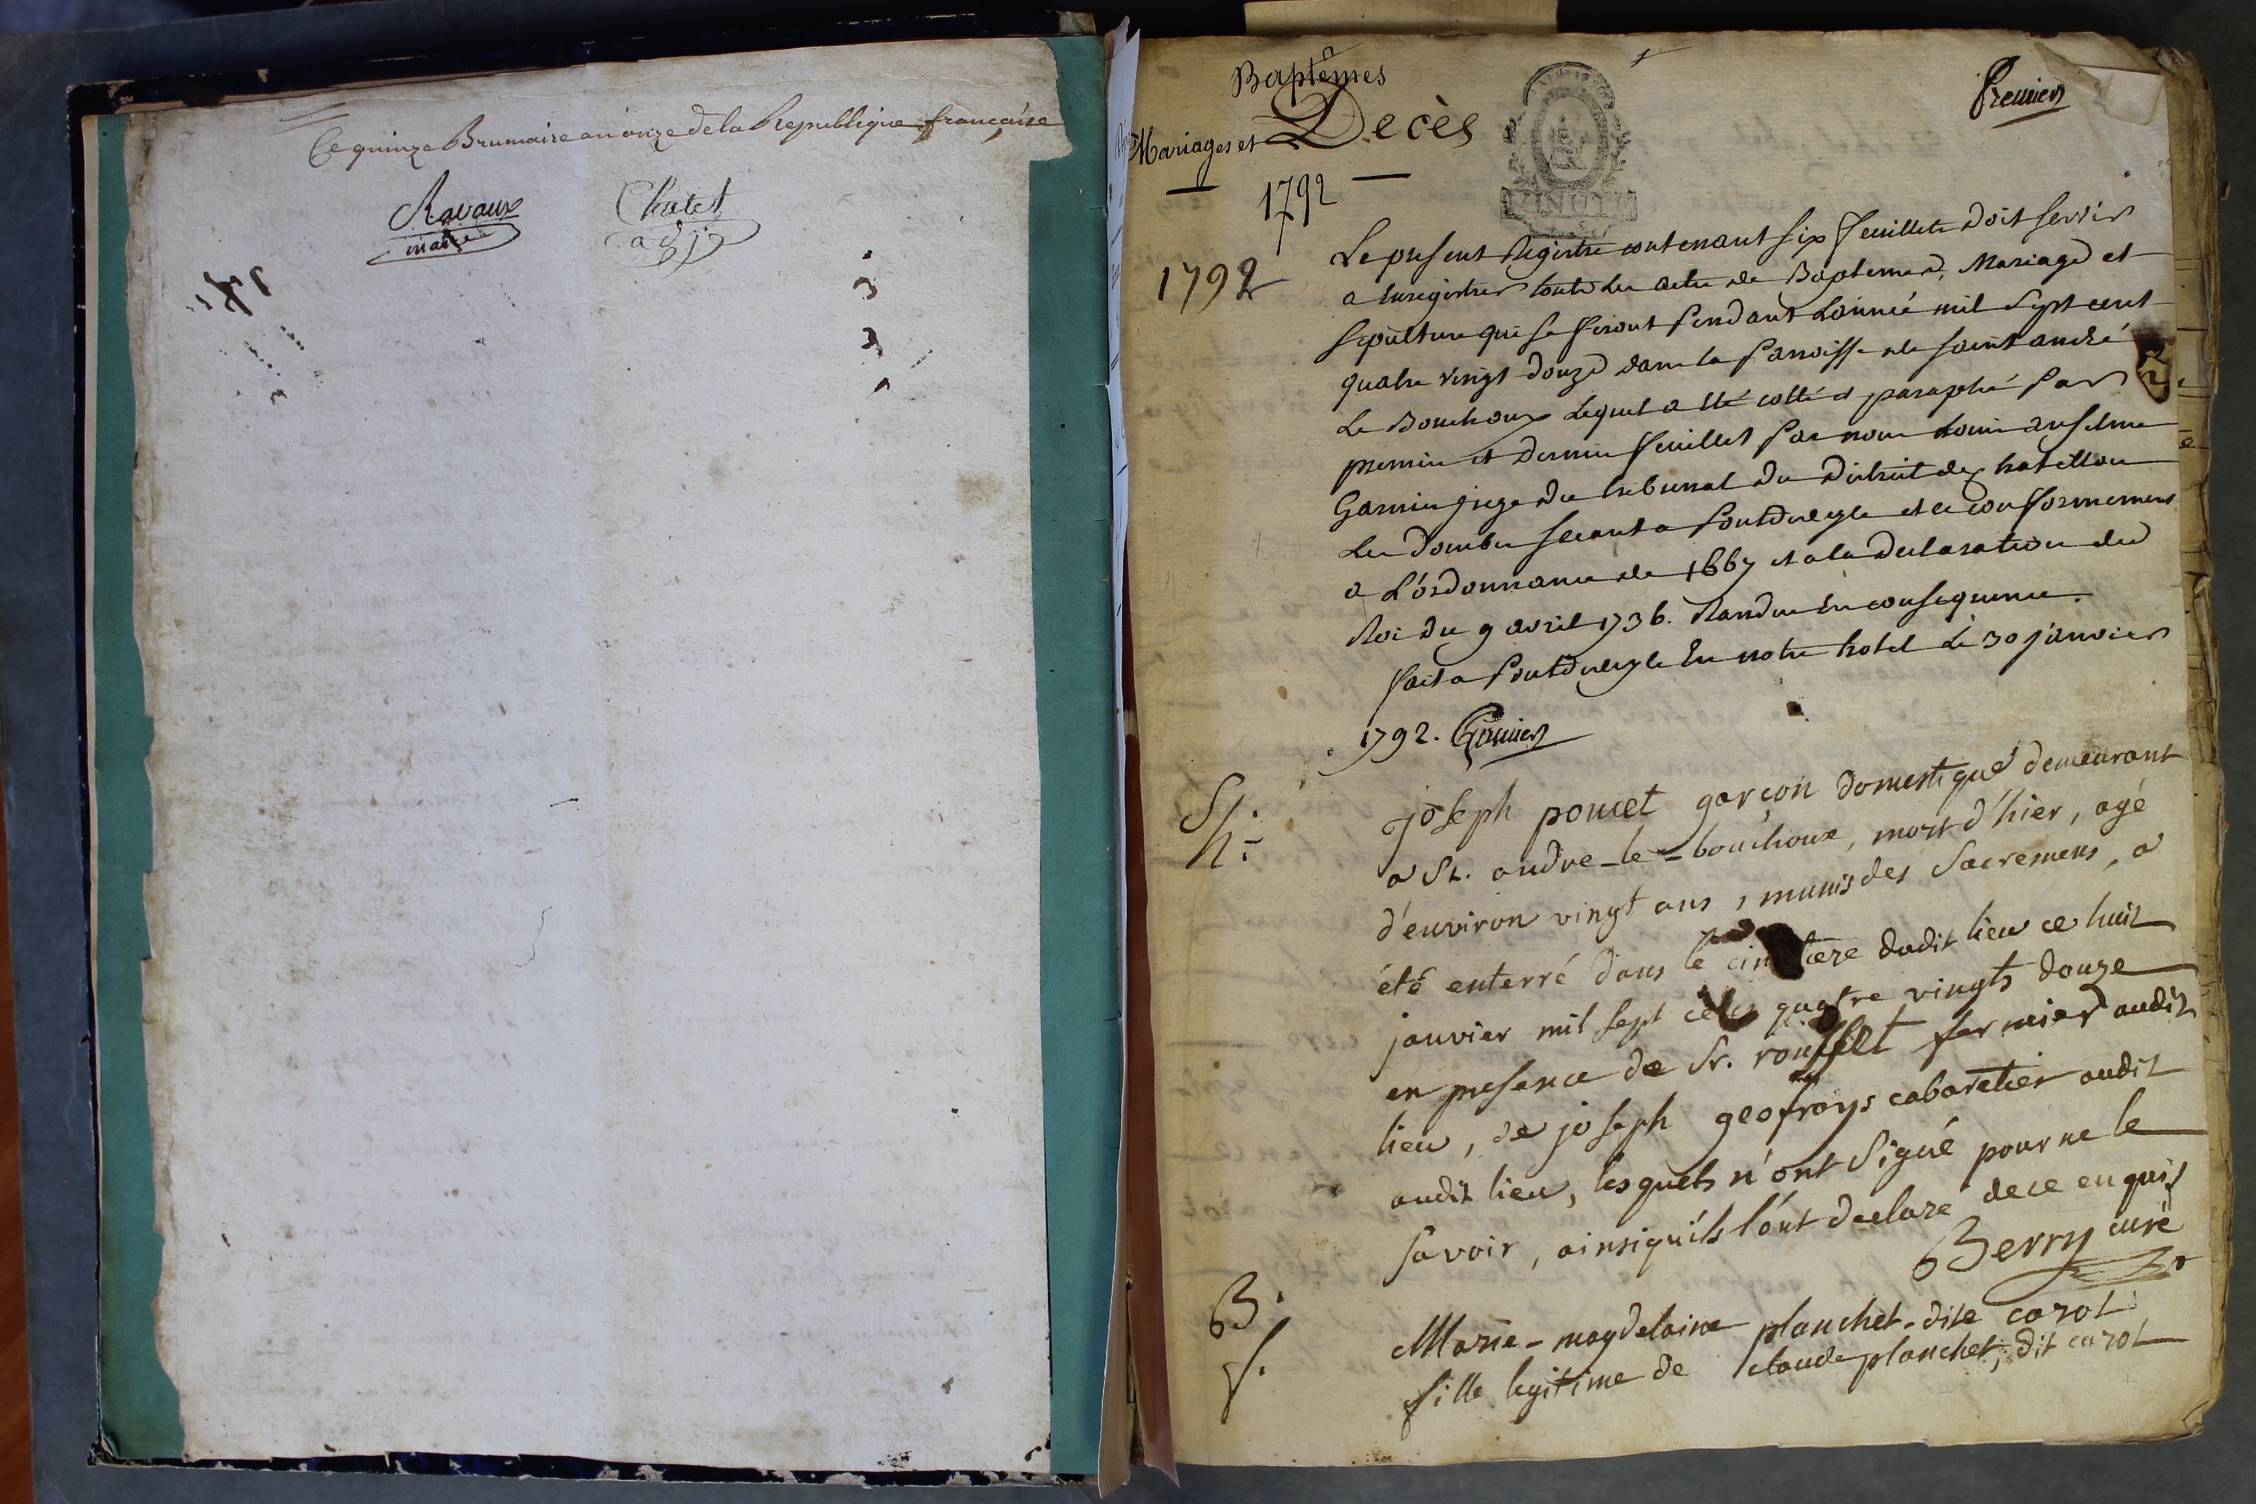 Ce quinze Brumaire an onze de la Republique française
Ravaux
maire
Chatet
adj
Baptêmes
Mariages et Decès
1792
Premier
1792
Le present Registre contenant six feuillets doit servir
a Enregistrer touts les actes de Baptemes, Mariages et
Sepulture qui se feront pendant L'année mil sept cent
quatre vingt douze dans la Paroisse de saint andré
Le Bouchoux Lequel a été cotté et paraphé par
premier et dernier feuillet Par nous Louis anselme
Garnier juge du tribunal du District de chatillon
Les Dombes séeant a Pontdevesle et ce conformement
a L'ordonnance de 1667 et a la Declaration du
Roi du 9 avril 1736. Randue En consequence.
fait a Pontdevesle En notre hotel Le 30 janvier
1792. Garnier
S.
h.
joseph poncet garçon domestique demeurant
a St. andre-le-bouchoux, mort d'hier, agé
d'environ vingt ans, munis des Sacremens, a
été enterré dans le cimetiere dudit lieu ce huit
janvier mil sept cent quatre vingts douze
en presence de Sr. rousset fermier audit
lieu, de joseph geofrays cabaretier audit
audit lieu, lesquels n'ont Signé pour ne le
savoir, ainsi qu'ils l'ont declare de ce enquis
Berry curé
B.
f.
Marie-magdelaine planchet-dite carot
fille legitime de claude planchet, dit carot